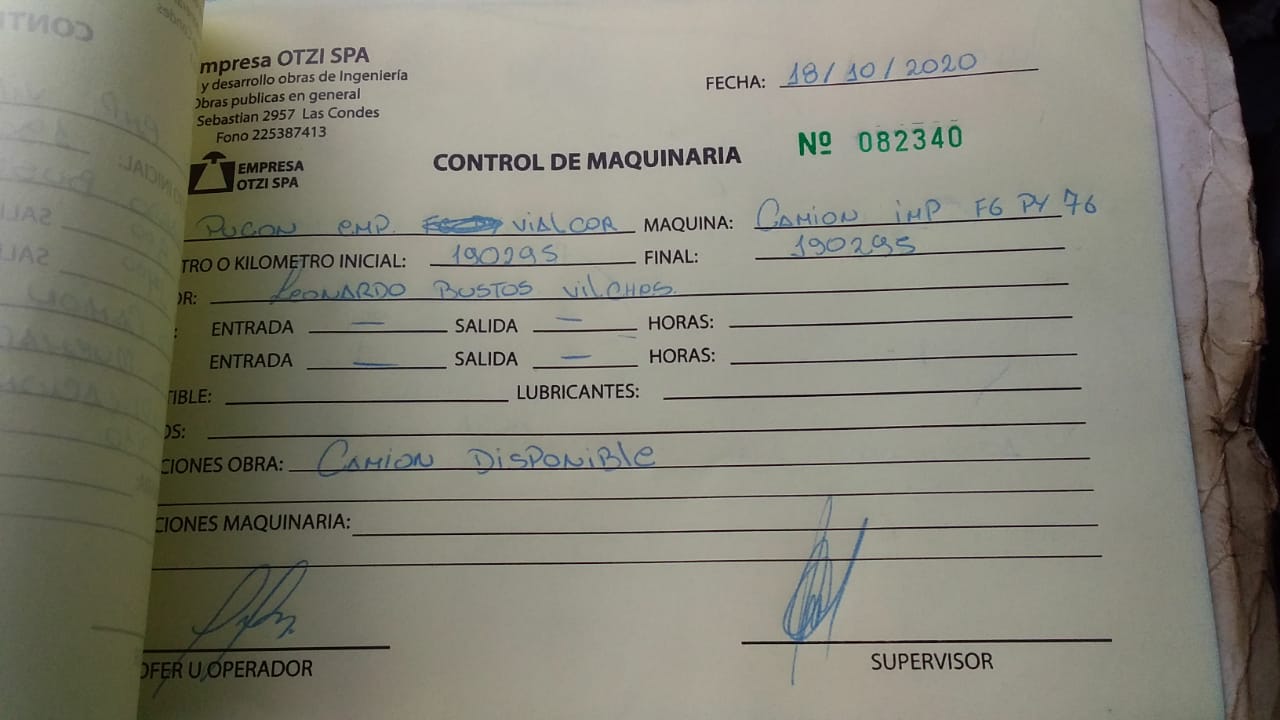 mpresa OTZI SPA
y desarrollo obras de Ingeniería
Obras publicas en general
Sebastian 2957 Las Condes
Fono 225387413
EMPRESA
OTZI SPA
FECHA: 18/10/2020
Nº 082340
CONTROL DE MAQUINARIA
PUCON EMP. VIALCOR MAQUINA: CAMION IMP FG PY 76
TRO O KILOMETRO INICIAL: 190295 FINAL: 190295
OR: LEONARDO BUSTOS VILCHES.
: ENTRADA — SALIDA — HORAS:
ENTRADA — SALIDA — HORAS:
TIBLE: LUBRICANTES:
OS:
CIONES OBRA: CAMION DISPONIBLE
CIONES MAQUINARIA:
OFER U OPERADOR
SUPERVISOR